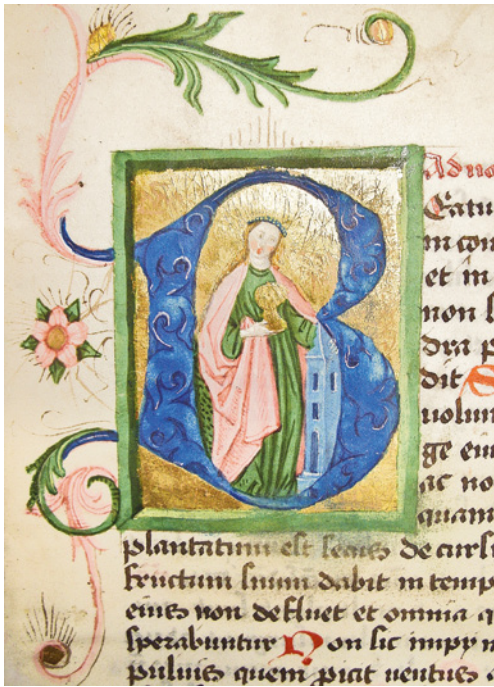 Ad no
Beatu
in con
et in
non s
dra p
dit S
uolun
ge eiu
ac no
quam
plantatum est secus decurs
fructum suum dabit in temp
eius non defluet et omnia q
sperabuntur Non sic impy n
puluis quem picit uentus